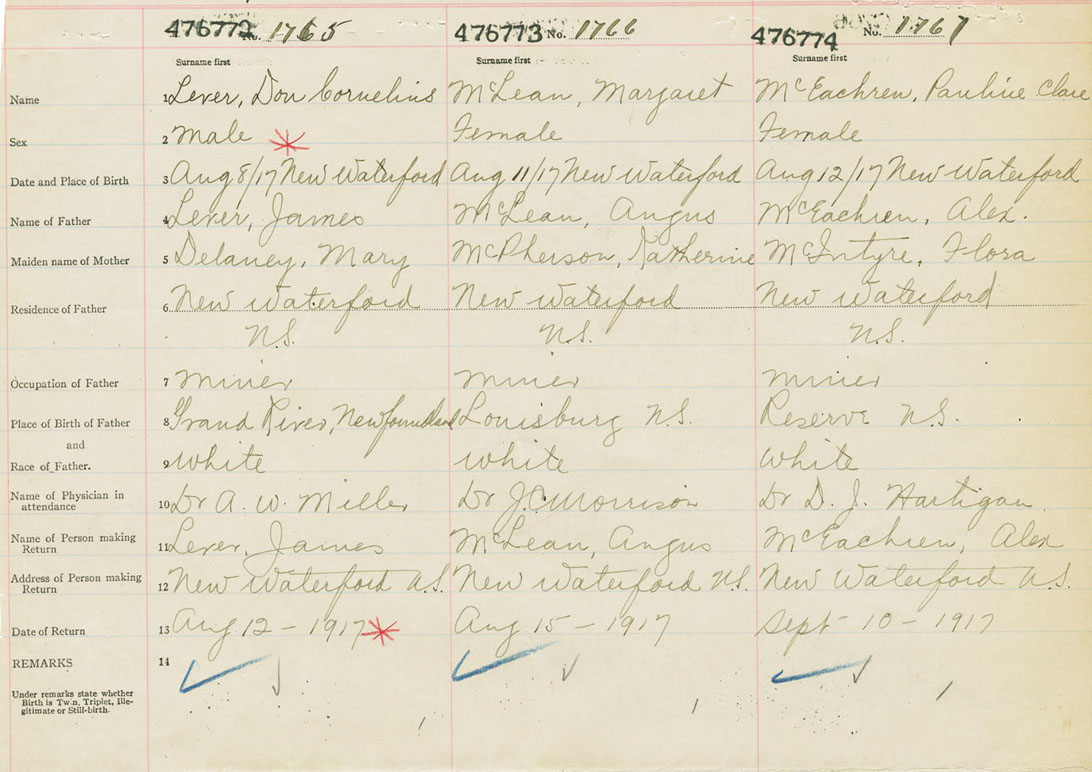 476772 No. 1765 476773 No. 1766 476774 No. 1767
Surname first Surname first Surname first
Name 1 Lever, Don Cornelius McLean, Margaret McEachren, Pauline Clare
Sex 2 Male Female Female
Date and Place of Birth 3 Aug 8/17 New Waterford Aug 11/17 New Waterford Aug 12/17 New Waterford
Name of Father 4 Lever, James McLean, Angus McEachren, Alex.
Maiden name of Mother 5 Delaney, Mary McPherson, Katherine McIntyre, Flora
Residence of Father 6 New Waterford New Waterford New Waterford
N.S. N.S. N.S.
Occupation of Father 7 Miner Miner Miner
Place of Birth of Father 8 Grand River, Newfoundland Louisburg N.S. Reserve N.S.
and
Race of Father. 9 White White White
Name of Physician in attendance 10 Dr A. W. Miller Dr J.C. Morrison Dr D. J. Hartigan
Name of Person making Return 11 Lever, James McLean, Angus McEachren, Alex
Address of Person making Return 12 New Waterford N.S. New Waterford N.S. New Waterford N.S.
Date of Return 13 Aug 12 - 1917 Aug 15 - 1917 Sept 10 - 1917
REMARKS 14
Under remarks state whether
Birth is Twin, Triplet, Ille-
gitimate or Still-birth.